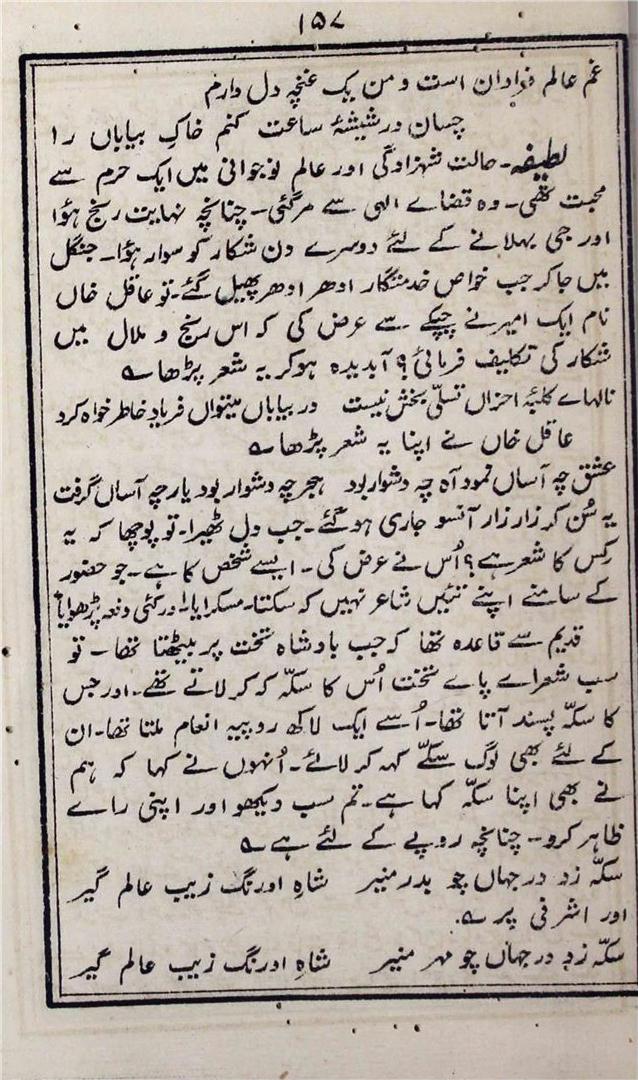 ۱۵۷
غم عالم فراوان است و من یک غنچہ دل دارم
چسان در شیشۂ ساعت کنم خاکِ بیاباں را
لطیفہ۔ حالت شہزادگی اور عالم نوجوانی میں ایک حرم سے
محبت تھی۔ وہ قضاے الٰہی سے مرگئی۔ چنانچہ نہایت رنج ہؤا
اور جی بہلانے کے لئے دوسرے دن شکار کو سوار ہؤا۔ جنگل
میں جاکر جب خواص خدمتگار ادھر ادھر پھیل گئے۔ تو عاقل خاں
نام ایک امیر نے چپکے سے عرض کی کہ اس رنج و ملال میں
شکار کی تکلیف فرمائی؟ آبدیدہ ہوکر یہ شعر پڑھا ؎
نالہاے کلبۂ احزاں تسلّی بخش نیست در بیاباں میتواں فریاد خاطر خواہ کرد
عاقل خاں نے اپنا یہ شعر پڑھا ؎
عشق چہ آساں نمود آہ چہ دشوار بود ہجر چہ دشوار بود یار چہ آساں گرفت
یہ سُن کر زار زار آنسو جاری ہوگئے۔ جب دل ٹھیرا۔ تو پوچھا کہ یہ
کِس کا شعر ہے؟ اُس نے عرض کی۔ ایسے شخص کا ہے۔ جو حضور
کے سامنے اپنے تئیں شاعر نہیں کہ سکتا۔ مسکرایا۔ اور کئی دفعہ پڑھوایا
قدیم سے قاعدہ تھا کہ جب بادشاہ تخت پر بیٹھتا تھا۔ تو
سب شعراے پاے تخت اُس کا سکّہ کہ کر لاتے تھے۔ اور جس
کا سکّہ پسند آتا تھا۔ اُسے ایک لاکھ روپیہ انعام ملتا تھا۔ ان
کے لئے بھی لوگ سکّے کہہ کر لائے۔ اُنہوں نے کہا کہ ہم
نے بھی اپنا سکّہ کہا ہے۔ تم سب دیکھو اور اپنی راے
ظاہر کرو۔ چنانچہ روپے کے لئے ہے ؎
سکّہ زد در جہاں چو بدر منیر شاہِ اورنگ زیب عالم گیر
اور اشرفی پر ؎
سکّہ زد در جہاں چو مہر منیر شاہِ اورنگ زیب عالم گیر